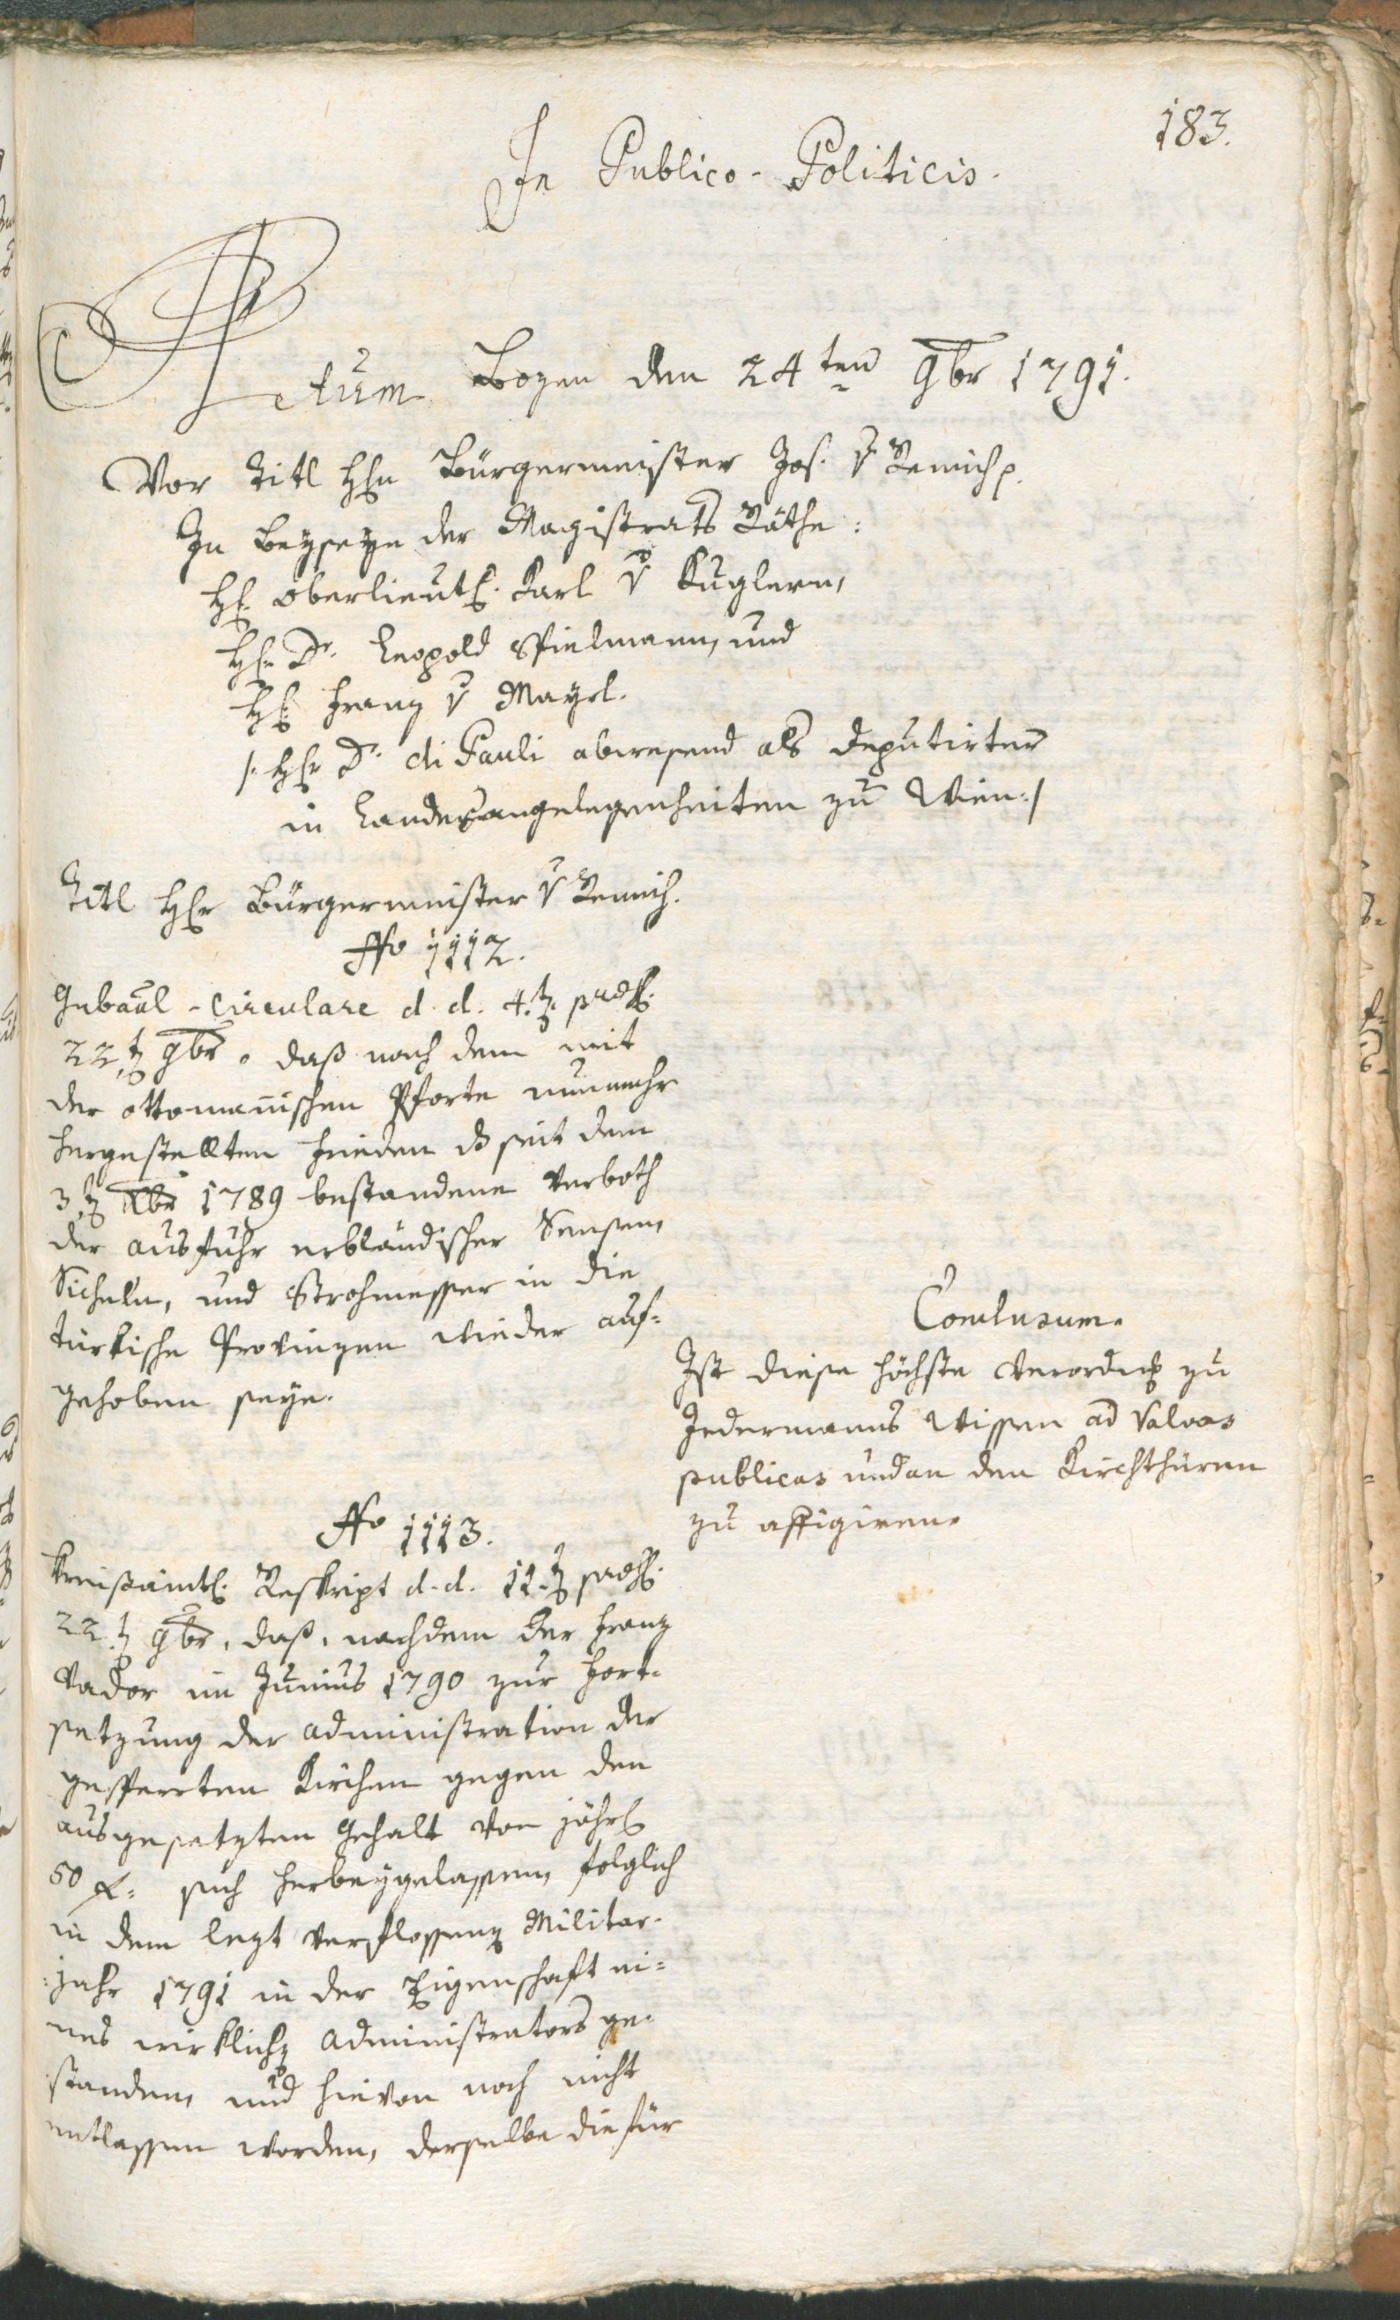 183.
In Publico-Politicis.
Actum Bozen den 24ten 9br 1791.
Vor Titl Hhn Bürgermeister Jos. v Remich p.
In Beyseyn der Magistrats Räthe:
Hh. Oberlieut. Karl v Kuglern,
Hh. Dr. Leopold Spielmann, und
Hh. Franz v Mayrl.
/: Hhr Dr. di Pauli abwesend als deputirter
in Landesangelegenheiten zu Wien :/
Titl Hhr Bürgermeister v Remich.
No 1112.
Gubaal-Circulare d. d. 4.t praes.
22.t 9br. daß nach dem mit
der ottomanischen Pforte nunmehr
hergestellten Frieden das seit dem
3.t Xbr 1789 bestandene Verboth
der ausfuhr erbländischer Sensen,
Sicheln, und Strohmesser in die
türkische Provinzen wieder auf-
gehoben seye.
Conclusum.
Ist diese höchste Verordng zu
Jedermanns Wissen ad Valvas
publicas und an den Kirchthüren
zu affigiren.
No 1113.
Kreisämtl. Reskript d. d. 11.t praes.
22.t 9br, daß, nachdem der Franz
Vador im Junius 1790 zur Fort-
setzung der administration der
gesperrten Kirchen gegen den
ausgesetzten Gehalt von jährl
50 f. sich herbeygelassen, folglich
in dem lezt verflossenen Militar-
jahr 1791 in der Eigenschaft ei-
nes wirklichen administrators ge-
standen, und hievon noch nicht
entlassen worden, derselbe die für